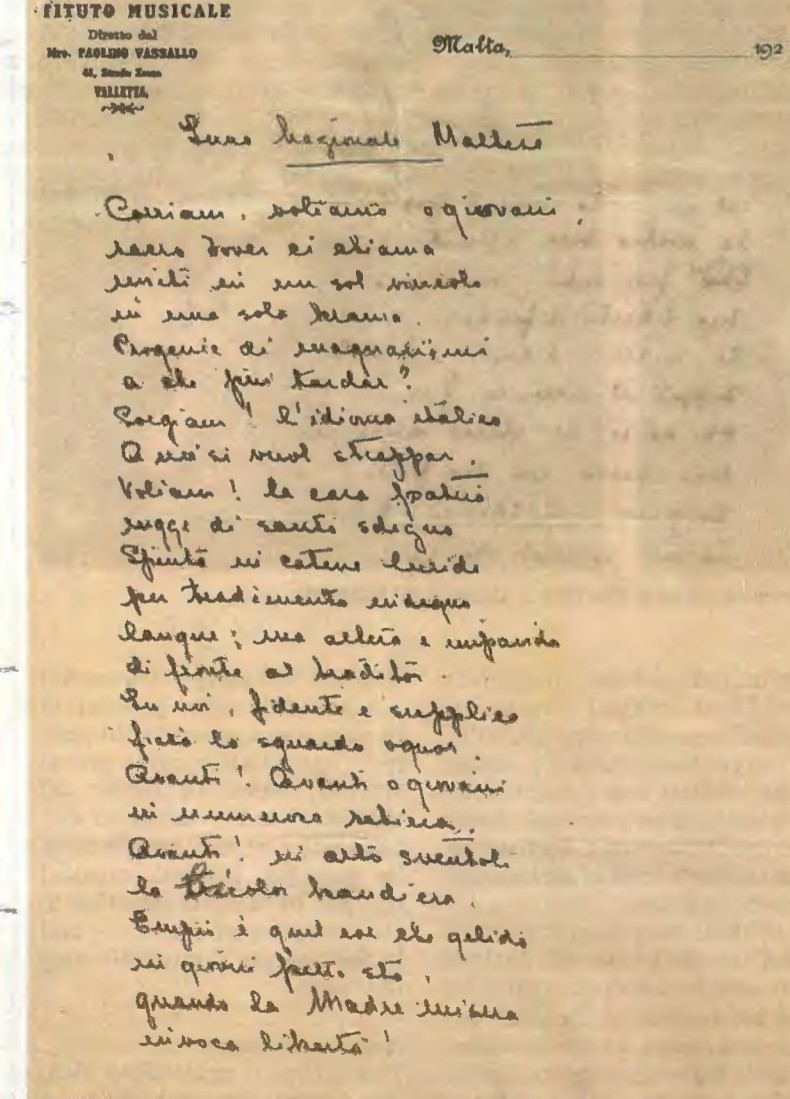 TITUTO MUSICALE
Diretto dal
Mro. PAOLINO VASSALLO
Strada Zecca
VALLETTA,
Malta, 192
Inno Nazionale Maltese
Corriam, voliamo o giovani,
sacro dover ci chiama
uniti in un sol vincolo
in una sola brama.
Progenie di magnanimi
a che più tardar?
Sorgiam! l'idioma italico
A noi si vuol strappar.
Voliam! la cara patria
rugge di santo sdegno
Spinta in catene luride
per tradimento indegno
langue; ma altera e impavida
di fronte al traditor.
In noi, fidente e supplice
fissa lo sguardo ognor.
Avanti! Avanti o giovani
in numerosa schiera.
Avanti! in alto sventoli
la tricolor bandiera.
Empio è quel cor che gelido
in giovin petto sta,
quando la Madre misera
invoca libertà!